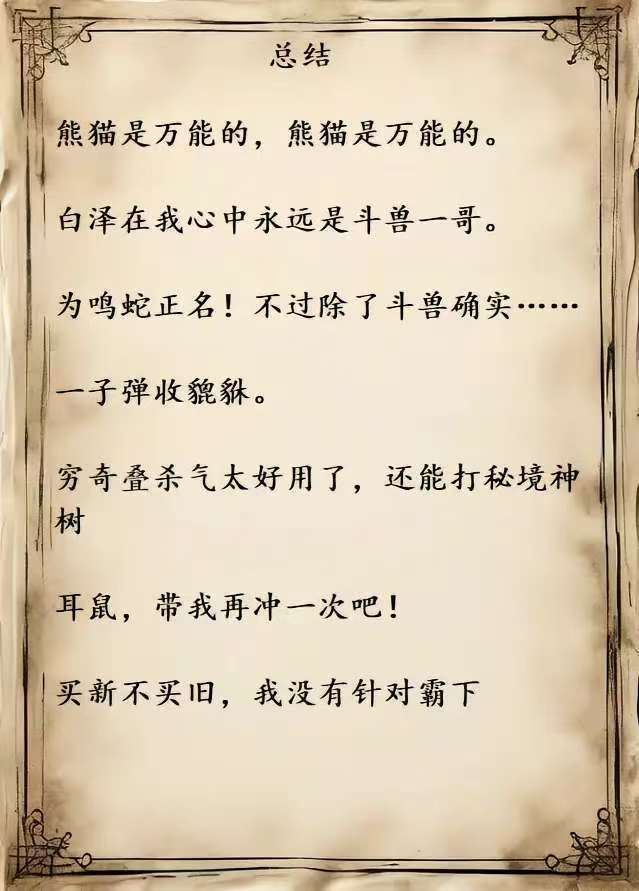 总结
熊猫是万能的，熊猫是万能的。
白泽在我心中永远是斗兽一哥。
为鸣蛇正名！不过除了斗兽确实……
一子弹收貔貅。
穷奇叠杀气太好用了，还能打秘境神
树
耳鼠，带我再冲一次吧！
买新不买旧，我没有针对霸下